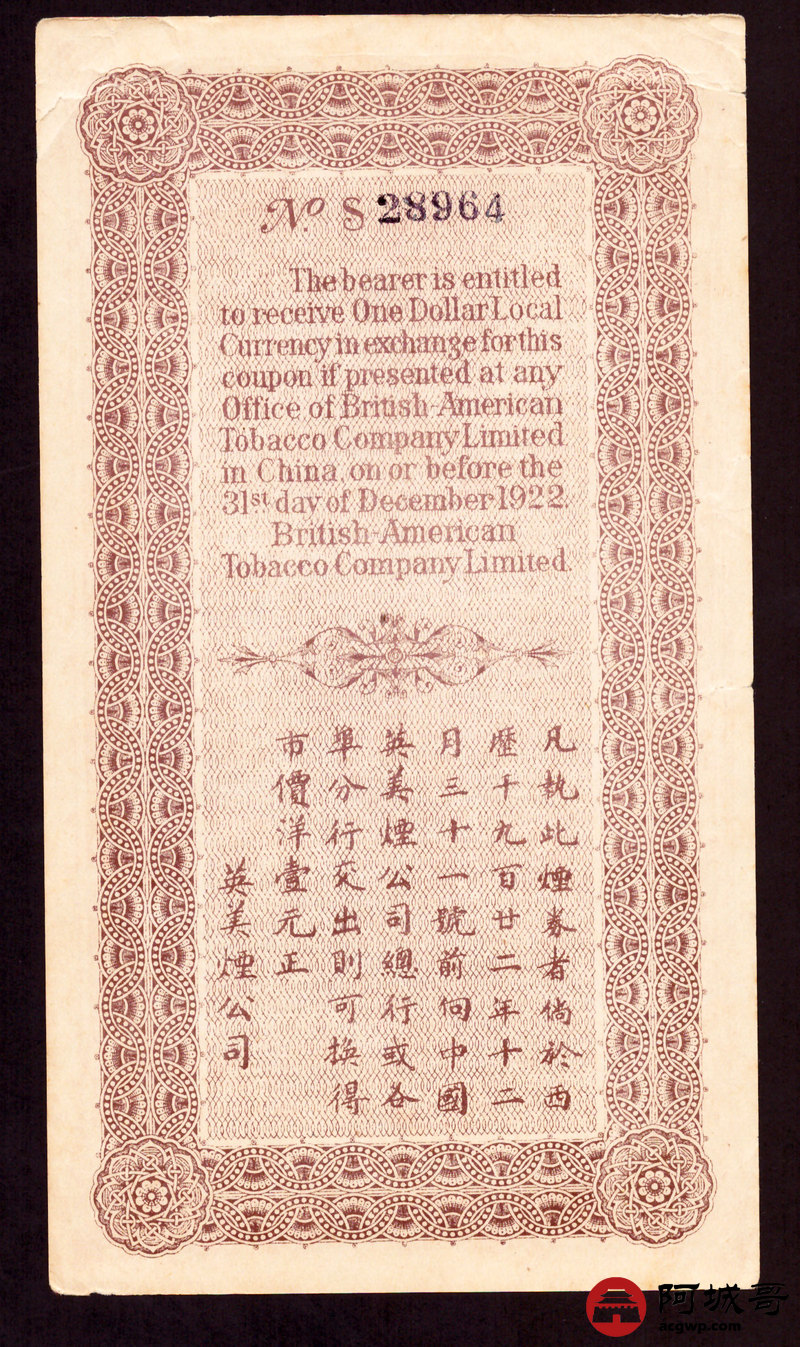 No. S 28964
The bearer is entitled
to receive One Dollar Local
Currency in exchange for this
coupon if presented at any
Office of British-American
Tobacco Company Limited
in China, on or before the
31st day of December 1922.
British-American
Tobacco Company Limited.
凡執此煙券者倘於西
歷十九百廿二年十二
月三十一號前向中國
英美煙公司總行或各
埠分行交出則可換得
市價洋壹元正
英美煙公司
阿城哥
acgwp.com